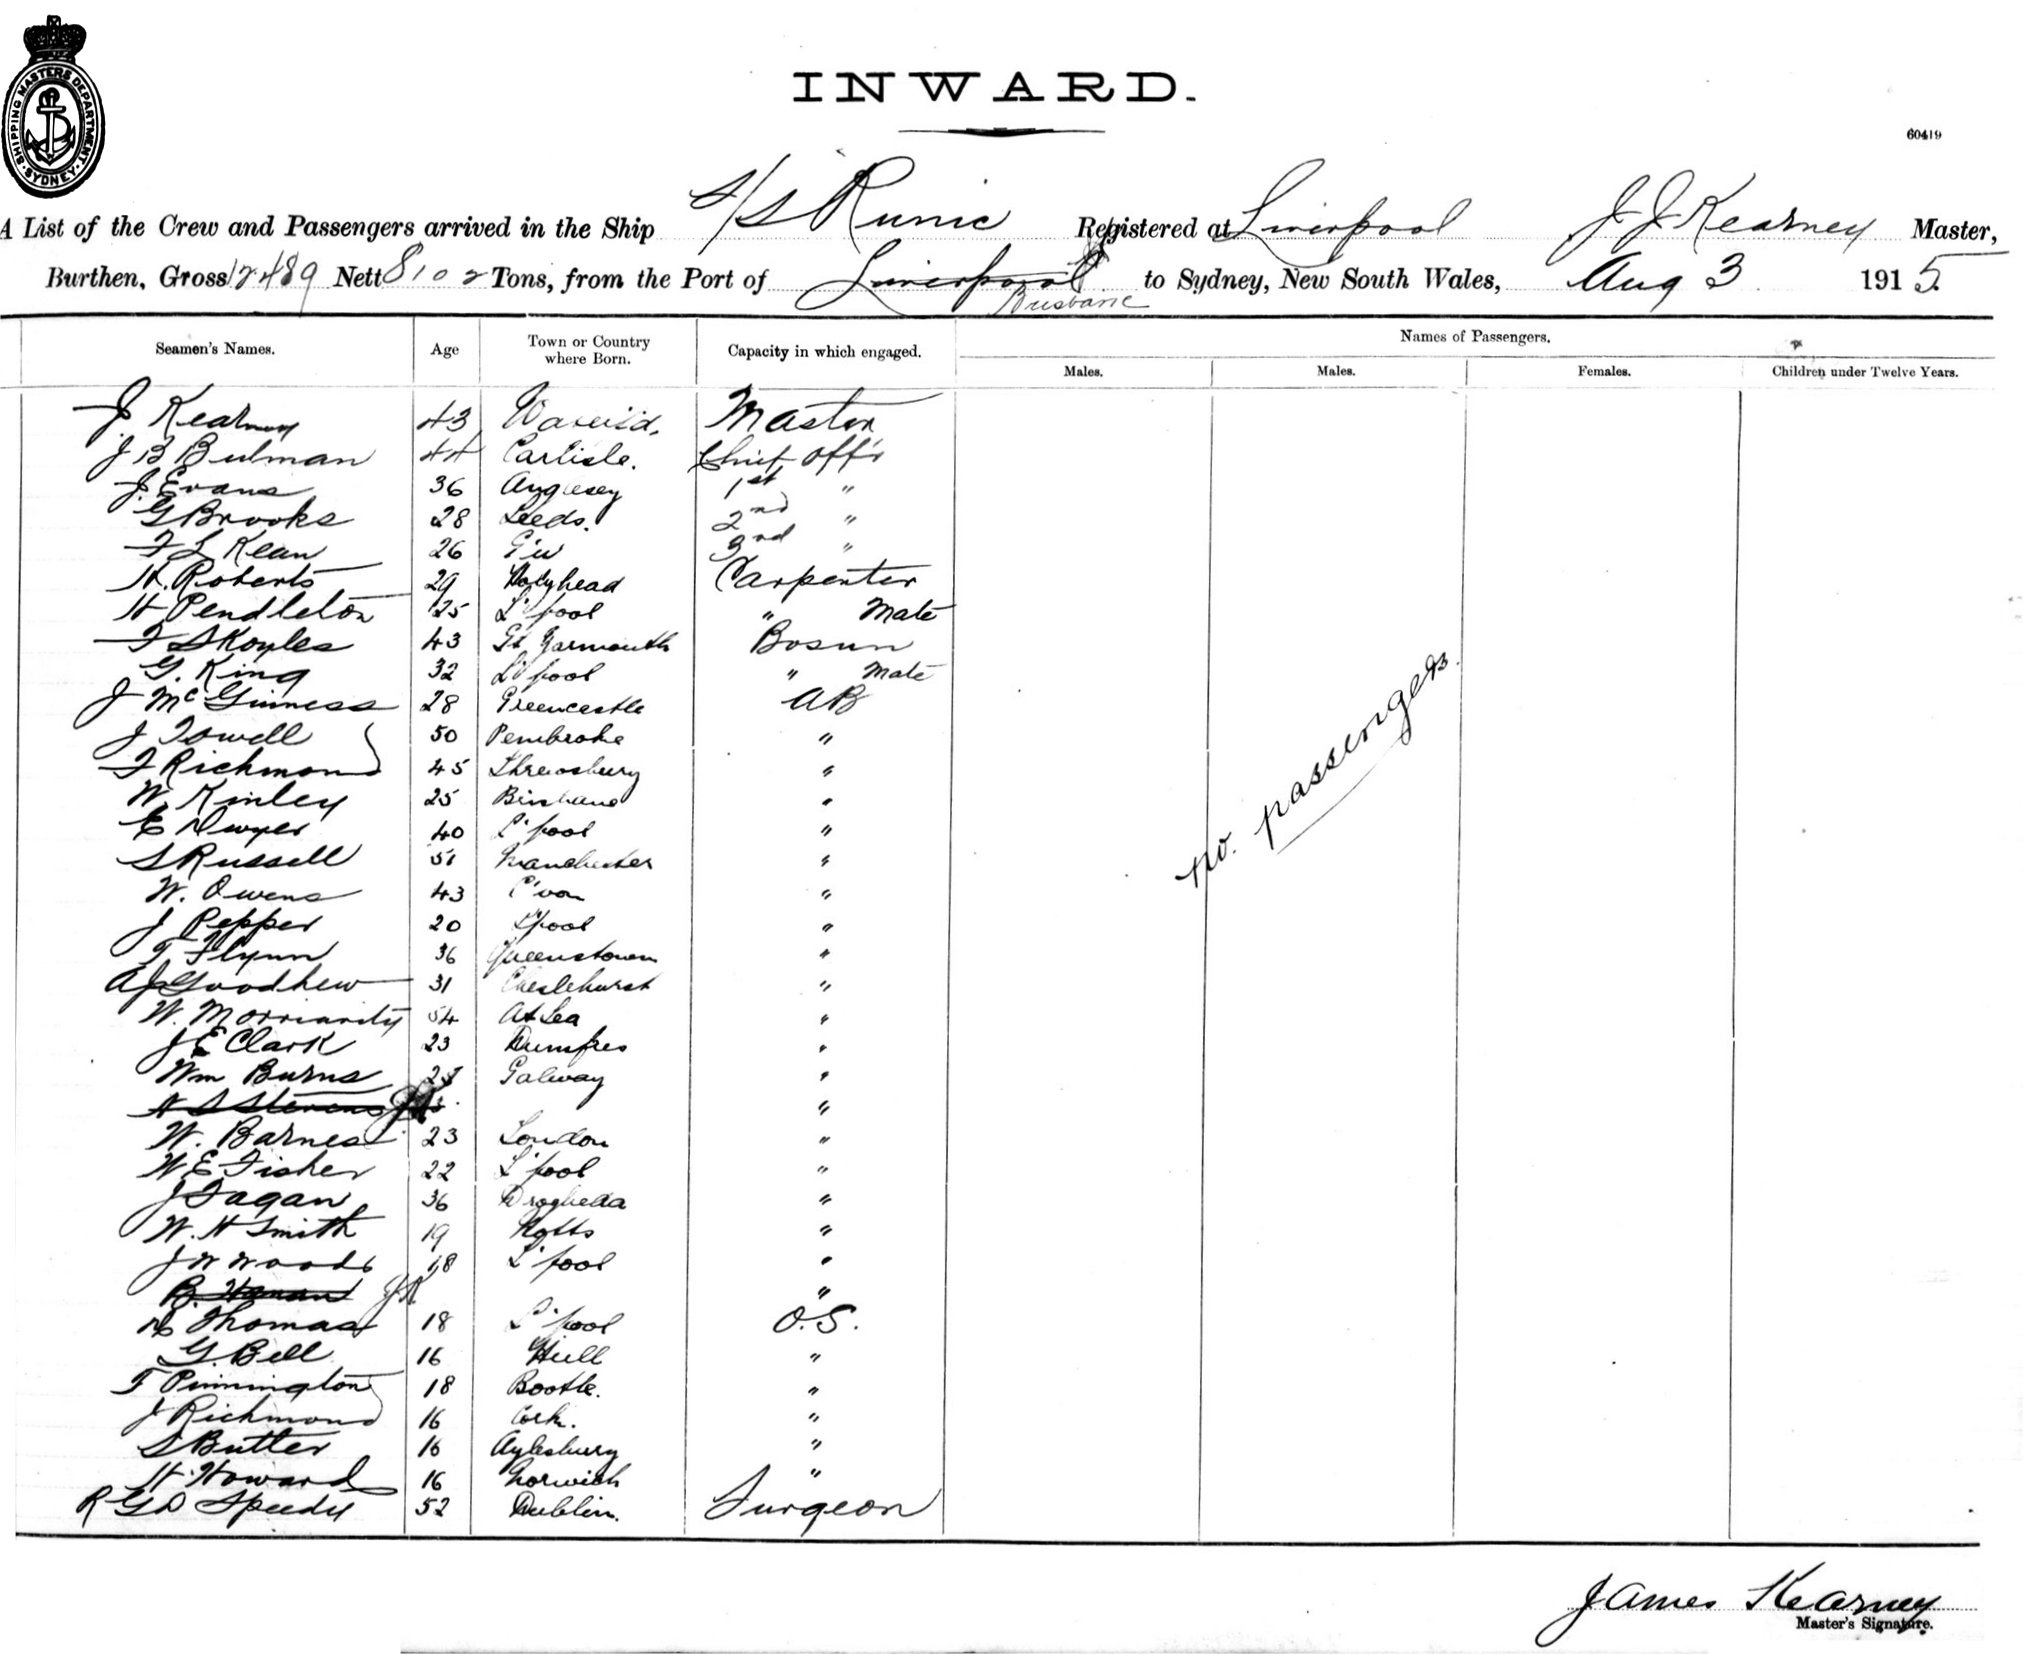 SHIPPING MASTERS DEPARTMENT SYDNEY
INWARD.
60419
A List of the Crew and Passengers arrived in the Ship S/S Runic Registered at Liverpool J J Kearney Master,
Burthen, Gross 12489 Nett 8102 Tons, from the Port of Liverpool Brisbane to Sydney, New South Wales, Aug 3 1915.
Seamen's Names. Age Town or Country where Born. Capacity in which engaged. Names of Passengers.
Males. Males. Females. Children under Twelve Years.
J Kearney 43 Master
J B Bulman 44 Carlisle. Chief Offr
J. Evans 36 Anglesey 1st "
G Brooks 28 Leeds. 2nd "
F L Kean 26 3rd "
H. Roberts 29 Holyhead Carpenter
H Pendleton 25 L'pool " Mate
F S Koyles 43 Gt Yarmouth Bosun
G. King 32 L'pool " Mate
J McGinness 28 Greencastle AB
J Towell 50 Pembroke "
F Richmond 45 Shrewsbury "
W. Kinley 25 Brisbane "
E Dwyer 40 L'pool "
S Russell 51 Manchester "
W. Owens 43 C'von "
J Pepper 20 L'pool "
T Flynn 36 Queenstown "
A J Goodhew 31 Cheslehurst "
W. Morriarity 54 At Sea "
J E Clark 23 Dumfres "
Wm Burns Galway "
H S Stevens "
W. Barnes 23 London "
W E Fisher 22 L'pool "
J Fagan 36 Drogheda "
W. H Smith 19 Notts "
J W Woods 18 L'pool "
B. JK "
Thomas 18 L'pool O.S.
G. Bell 16 Hull "
F Pinnington 18 Bootle. "
J Richmond 16 Cork. "
S Butler 16 Aylesbury "
H. Howard 16 Norwich "
R G D Speedy 52 Dublin. Surgeon
no. passengers.
James Kearney
Master's Signature.